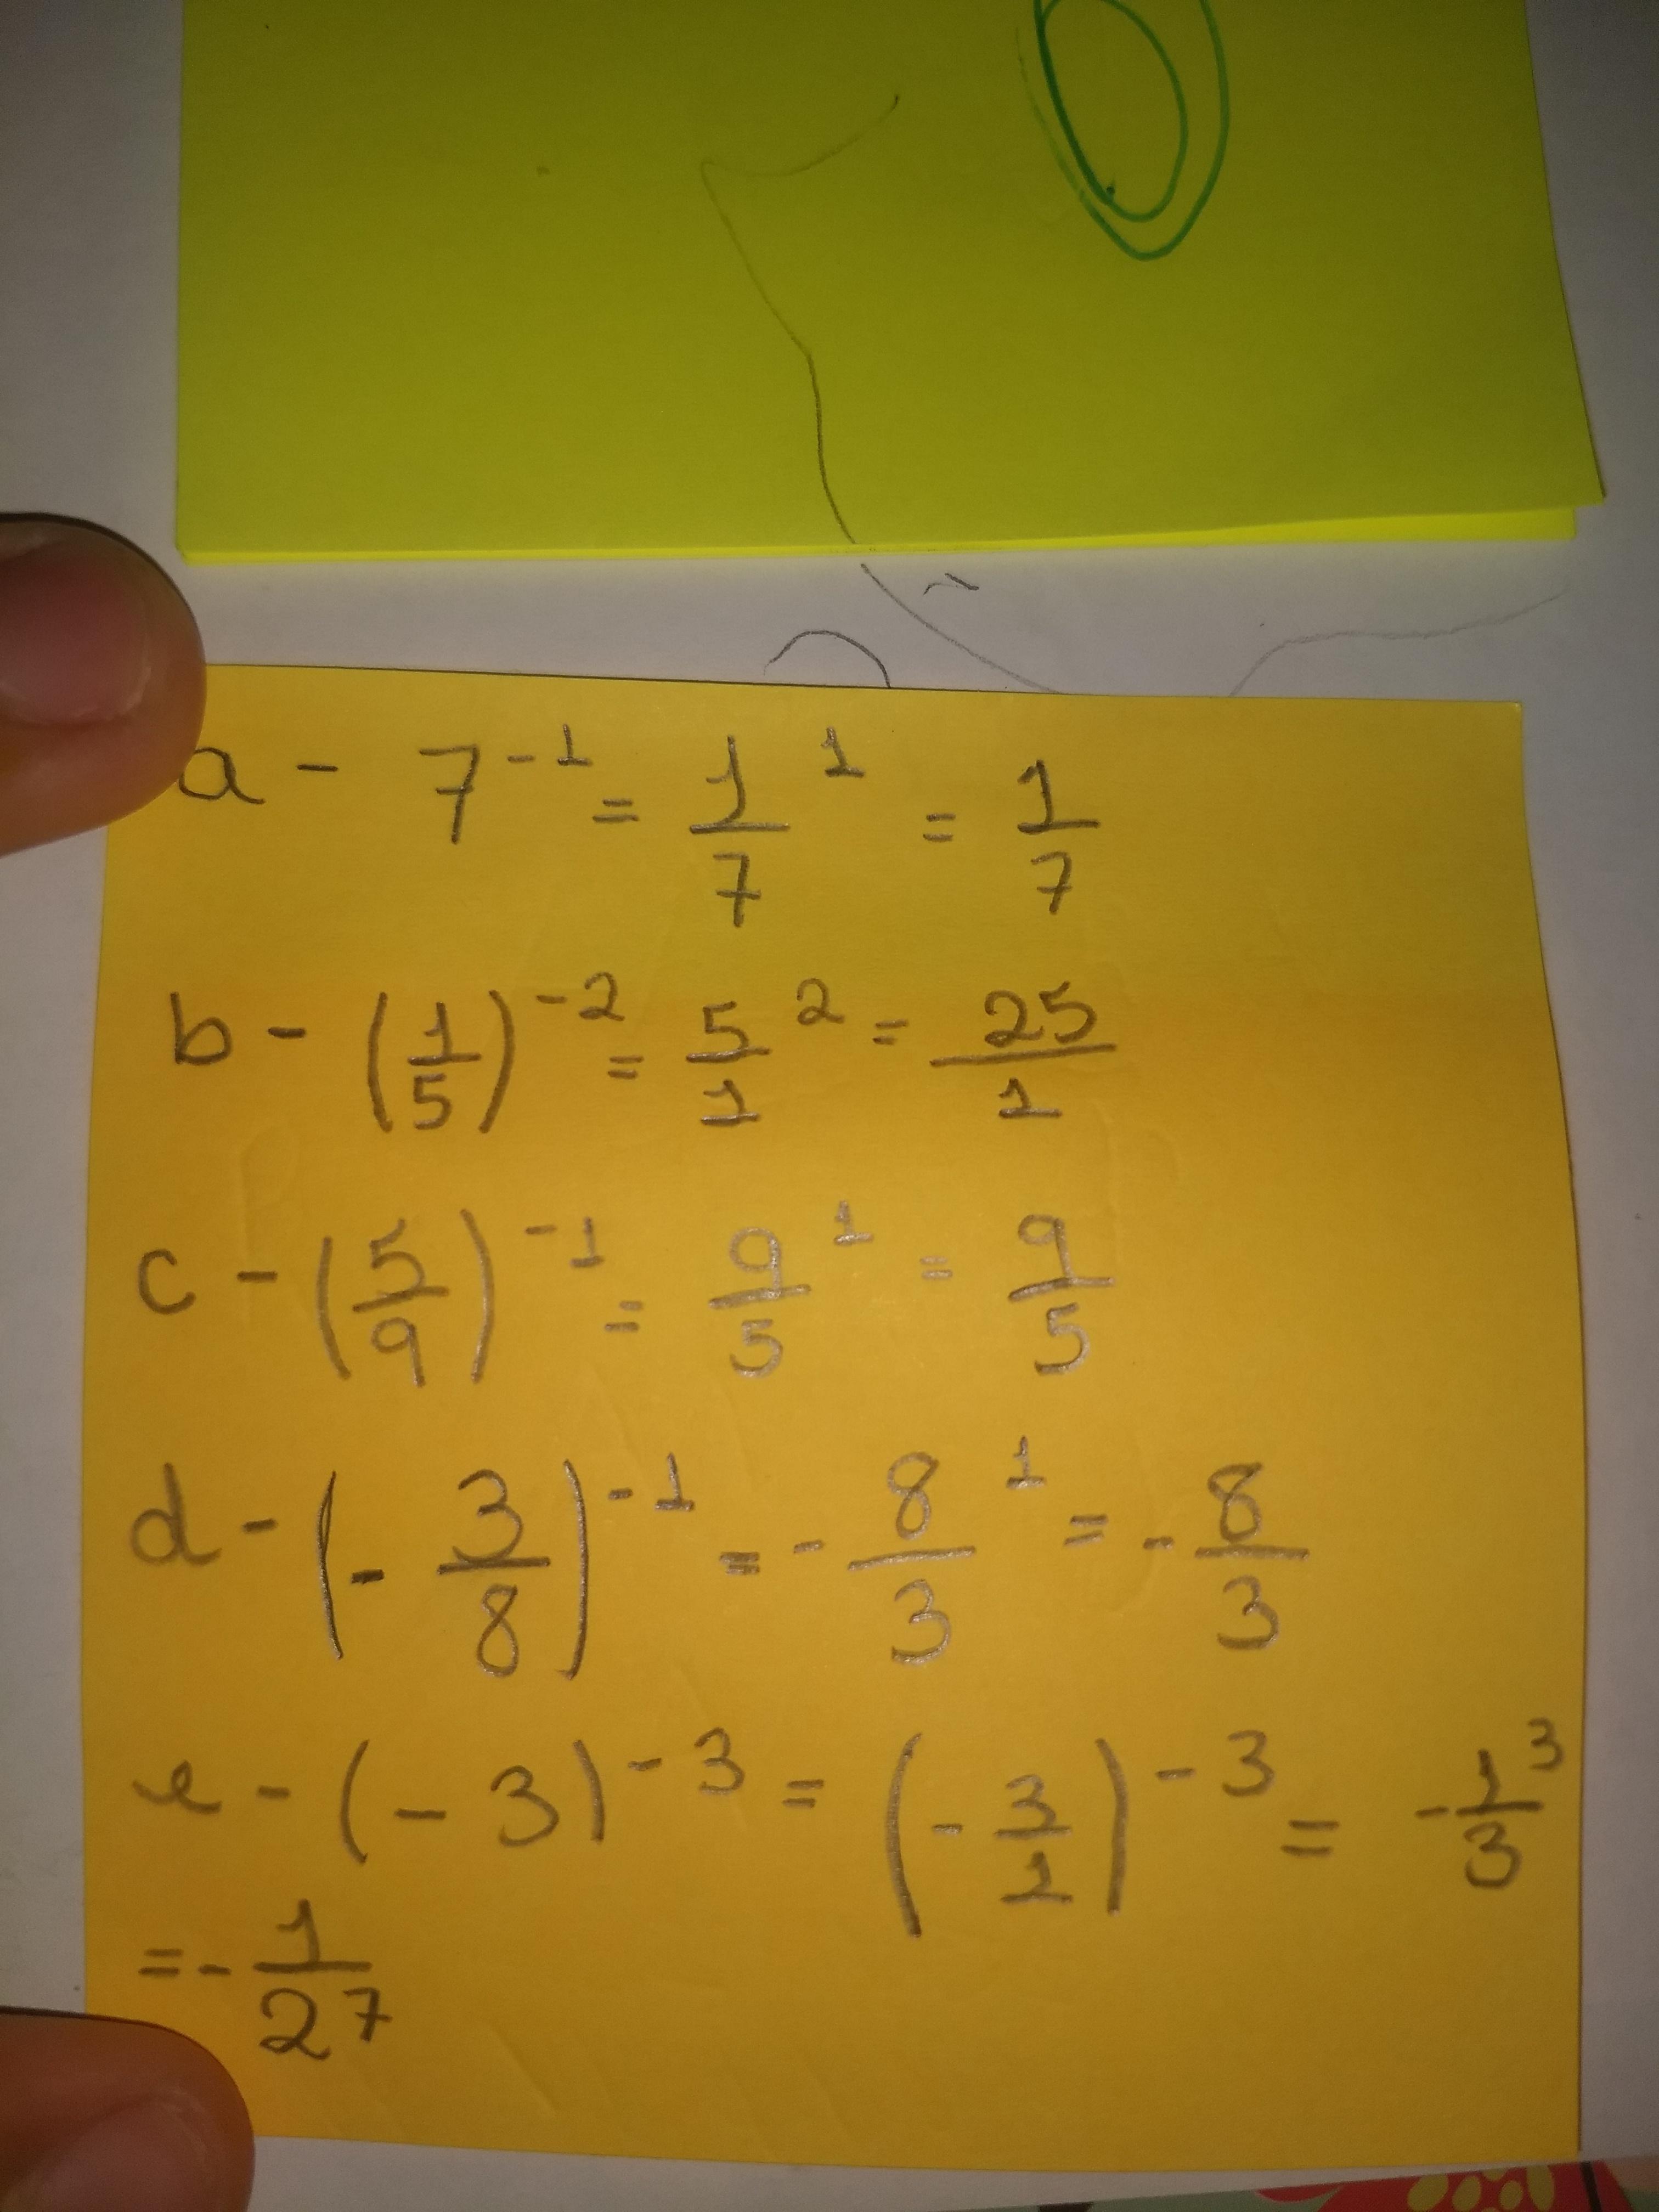 a - 7⁻¹ = 1/7 ¹ = 1/7
b - (1/5)⁻² = 5/1 ² = 25/1
c - (5/9)⁻¹ = 9/5 ¹ = 9/5
d - (- 3/8)⁻¹ = - 8/3 ¹ = - 8/3
e - (- 3)⁻³ = (- 3/1)⁻³ = - 1/3 ³
= - 1/27